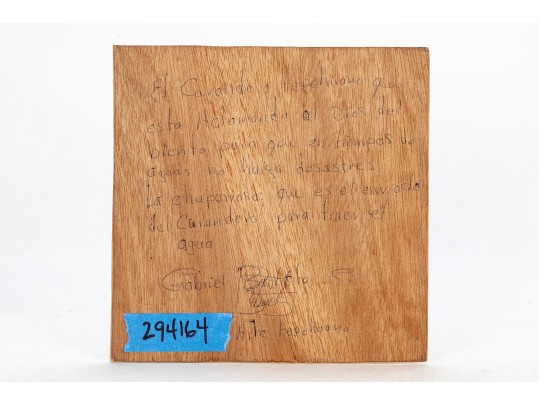 El Curandero tepehuano que
esta Actamando al Dios del
biento para que en tiempos de
aguas no haiga desastres
La chuparrosa que es el enviado
del Curandero para traer el
agua
Gabriel Bautista C.
Arte tepehuano
294164